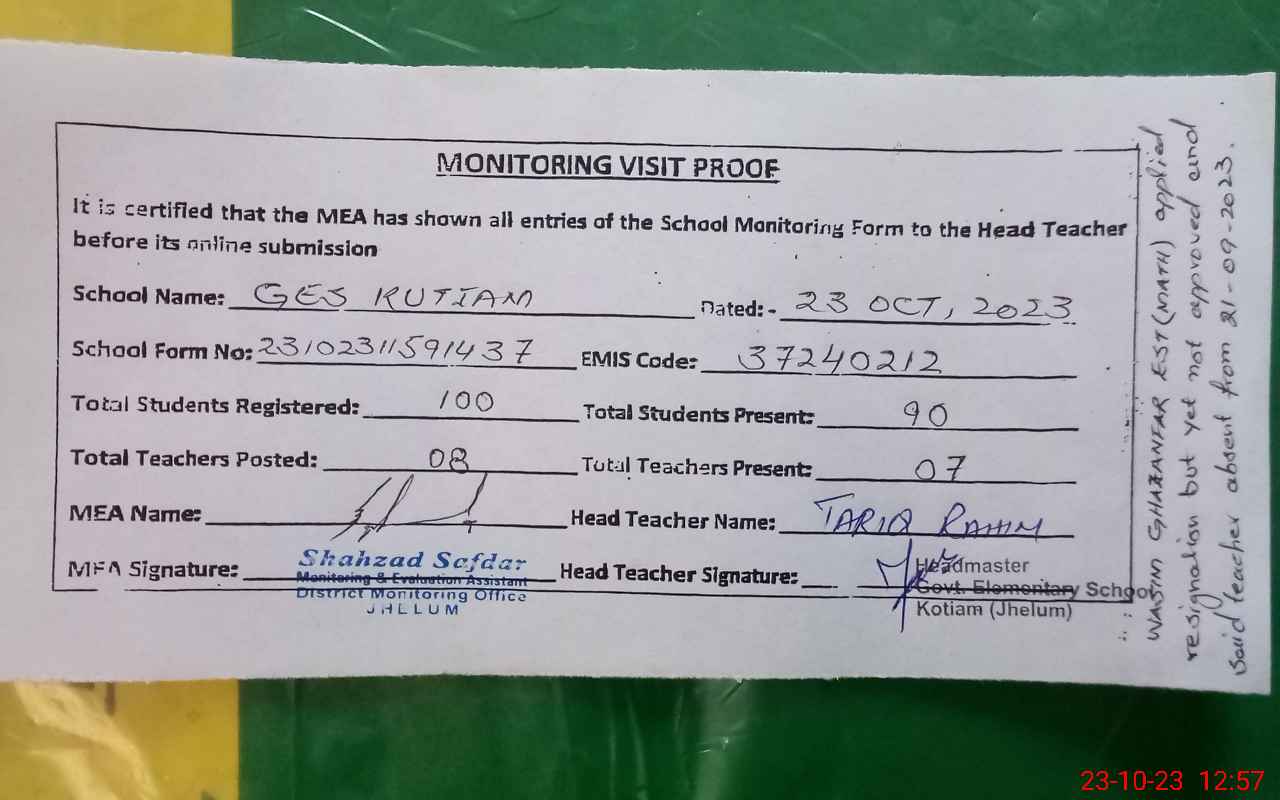 MONITORING VISIT PROOF
It is certified that the MEA has shown all entries of the School Monitoring Form to the Head Teacher
before its online submission
School Name: GES KUTIAM Dated:- 23 OCT, 2023
School Form No: 23102311591437 EMIS Code: 37240212
Total Students Registered: 100 Total Students Present: 90
Total Teachers Posted: 08 Total Teachers Present: 07
MEA Name: Head Teacher Name: TARIQ RAHIM
MEA Signature: Head Teacher Signature:
Shahzad Safdar
Monitoring & Evaluation Assistant
District Monitoring Office
JHELUM
Headmaster
Govt. Elementary School
Kotiam (Jhelum)
WASIM GHAZANFAR EST (MATH) applied
resignation but yet not approved and
said teacher absent from 21-09-2023.
23-10-23 12:57